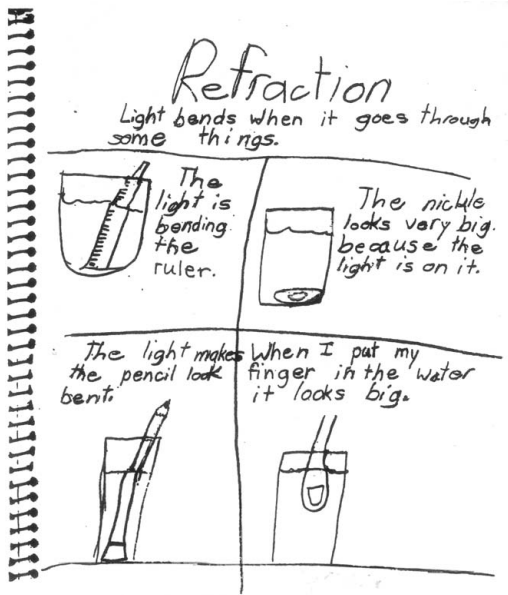 Refraction
Light bends when it goes through
some things.
The
light is
bending
the
ruler.
The nickle
looks very big.
because the
light is on it.
The light makes
the pencil look
bent.
When I put my
finger in the water
it looks big.